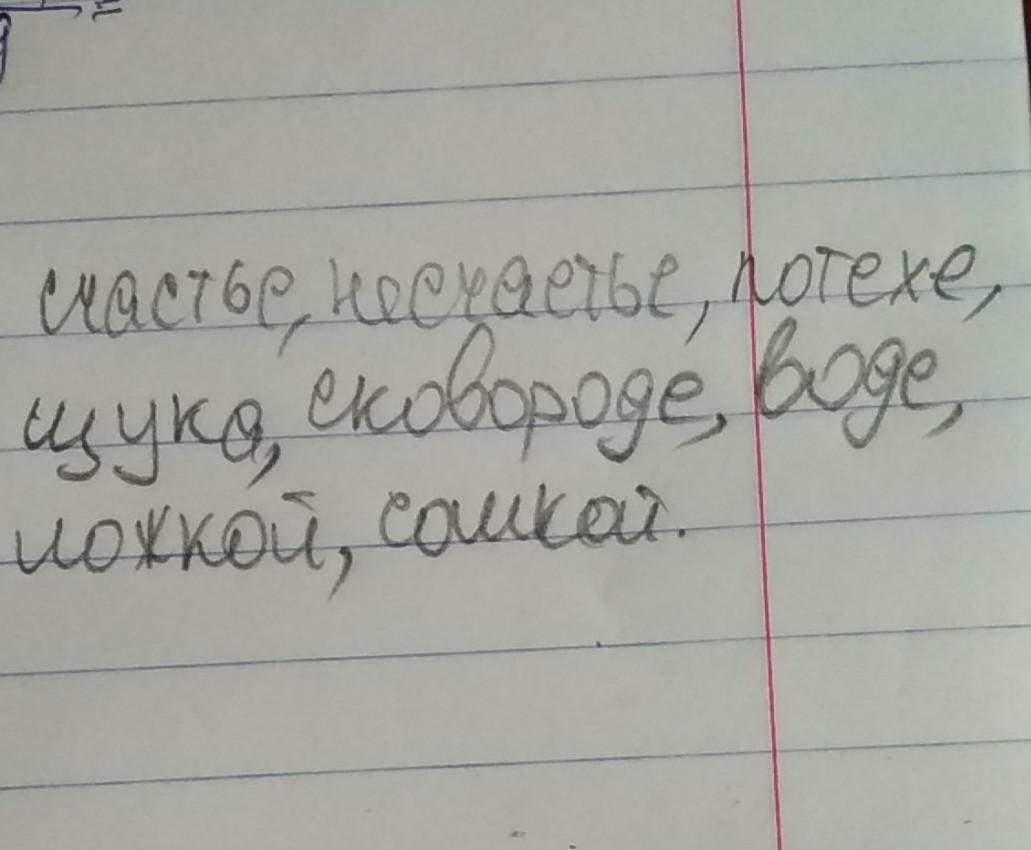 счастье, несчастье, потехе,
щука, сковороде, воде,
ложкой, сошкой.